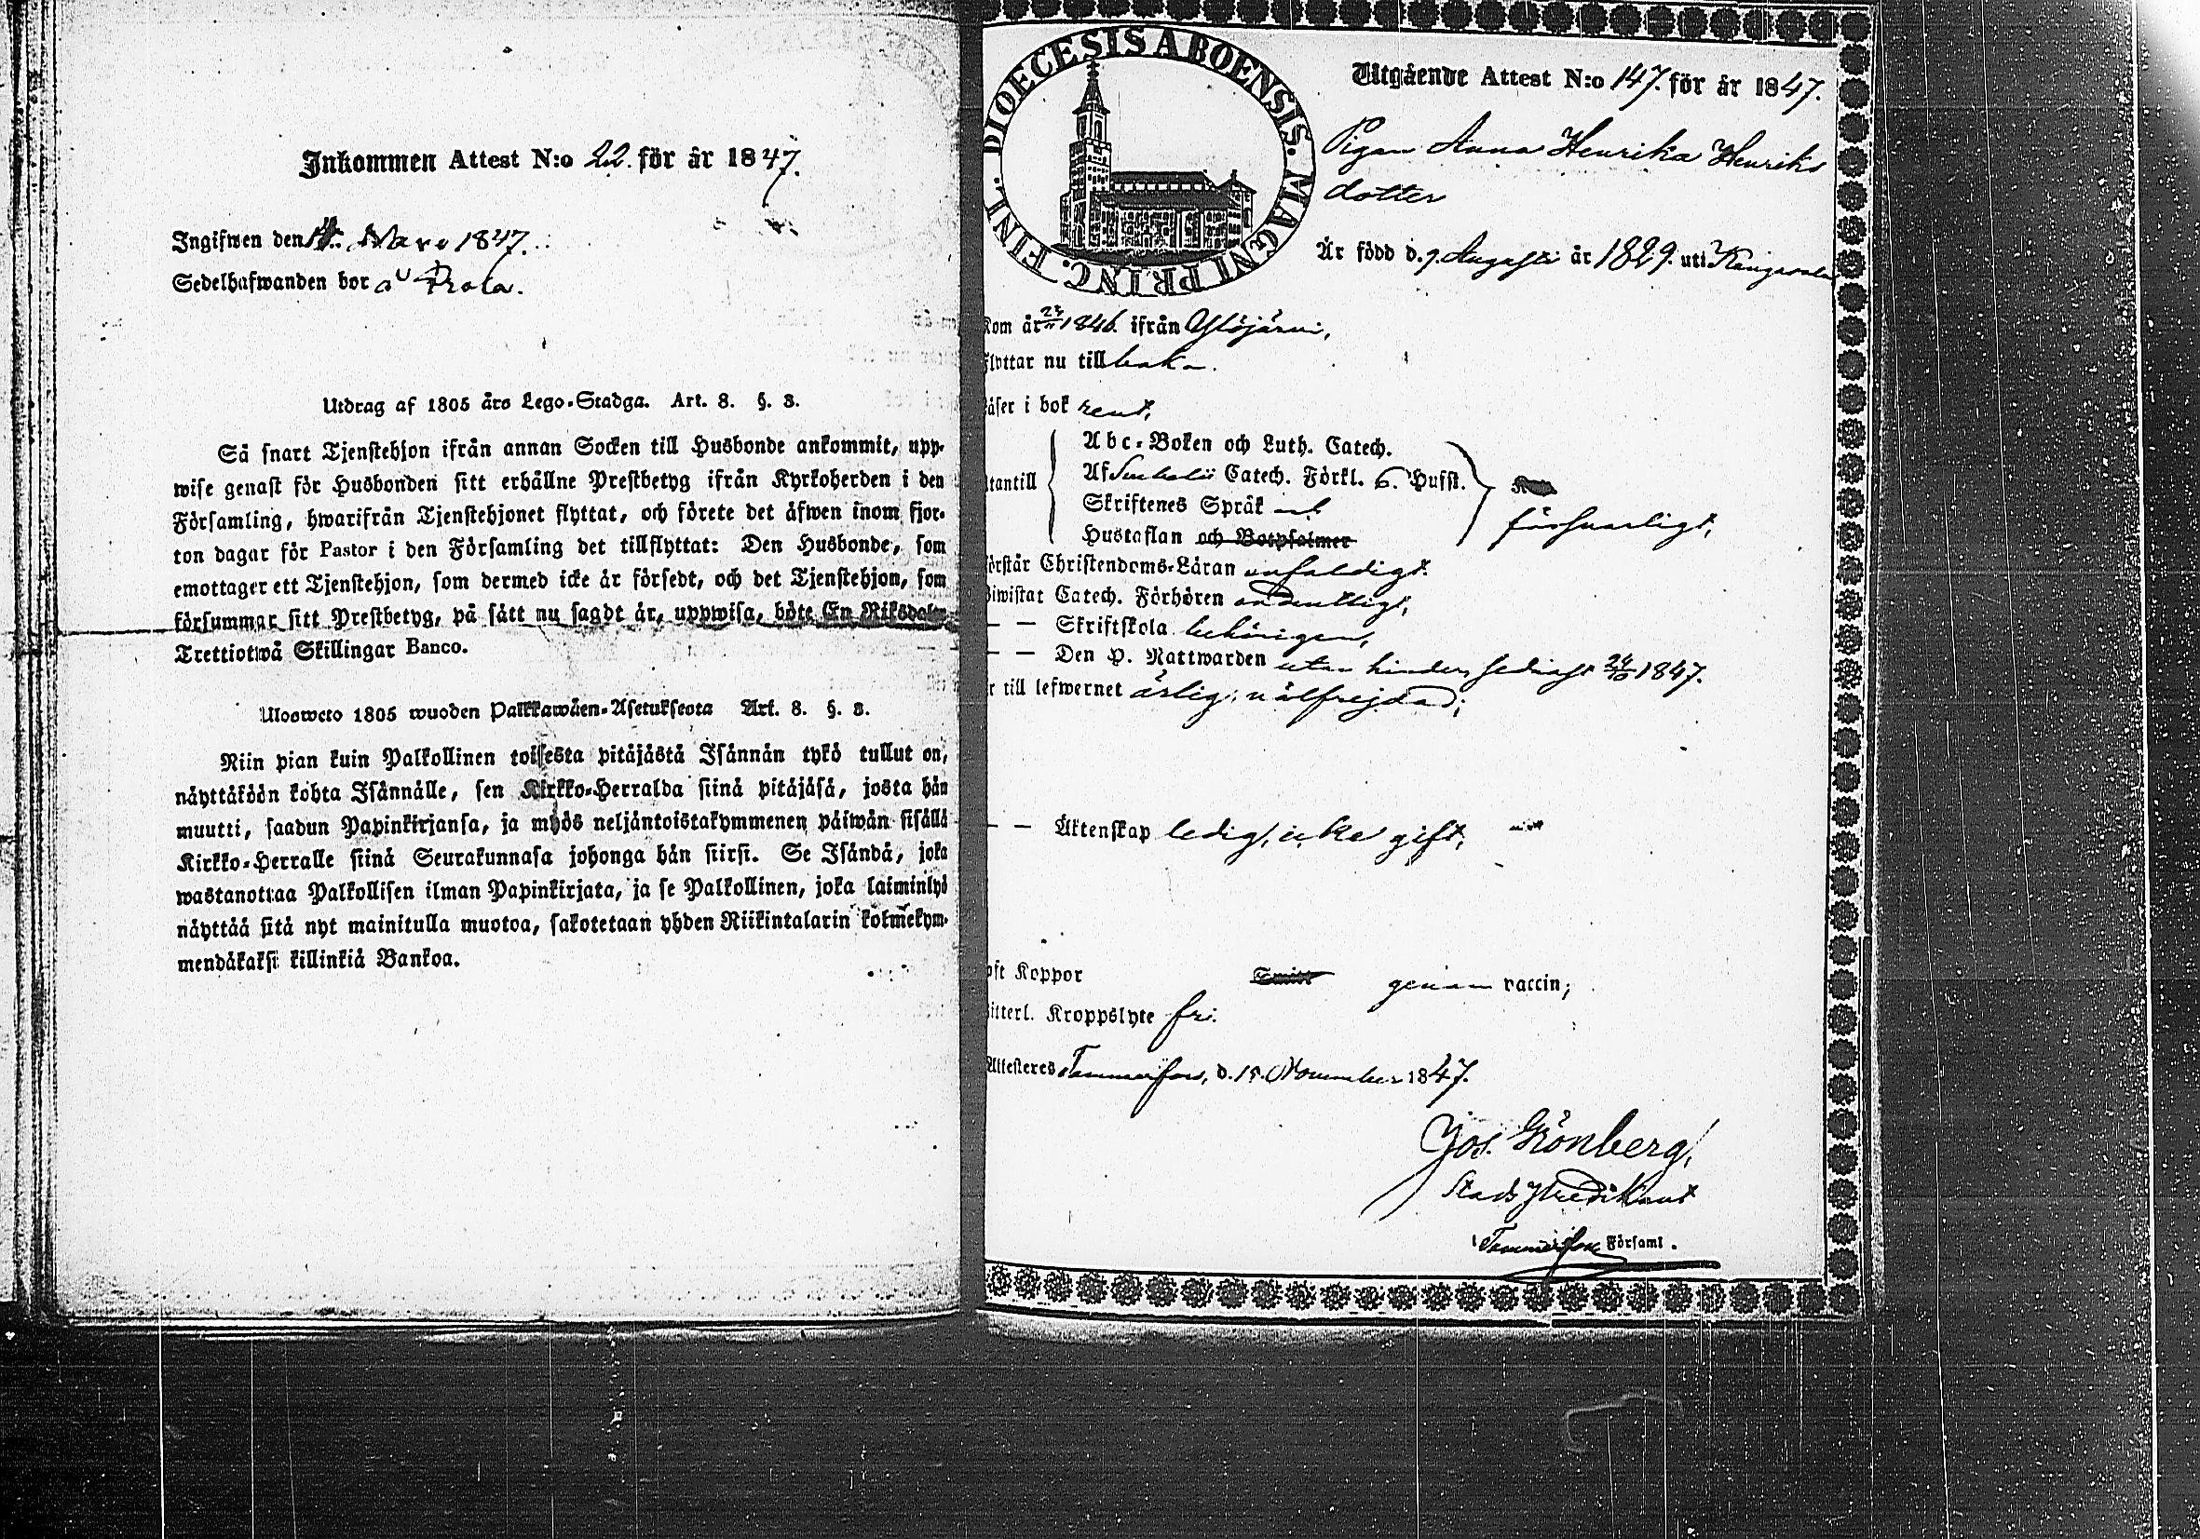 Inkommen Attest N:o 22. för år 1847.
Ingifwen den 1847.
Sedelhafwanden bor å Prola.
Utdrag af 1805 års Lego-Stadga. Art. 8. §. 3.
Så snart Tjenstehjon ifrån annan Socken till Husbonde ankommit, upp-
wise genast för Husbonden sitt erhållne Prestbetyg ifrån Kyrkoherden i den
Församling, hwarifrån Tjenstehjonet flyttat, och förete det äfwen inom fjor-
ton dagar för Pastor i den Församling det tillflyttat: Den Husbonde, som
emottager ett Tjenstehjon, som dermed icke är försedt, och det Tjenstehjon, som
försummar sitt Prestbetyg, på sätt nu sagdt är, uppwisa, böte En Riksdaler
Trettiotwå Skillingar Banco.
Ulosweto 1805 wuoden Palkkawäen-Asetuksesta Art. 8. §. 3.
Niin pian kuin Palkollinen toisesta pitäjästä Isännän tykö tullut on,
näyttäköön kohta Isännälle, sen Kirkko-Herralda siinä pitäjäsä, josta hän
muutti, saadun Papinkirjansa, ja myös neljäntoistakymmenen päiwän sisällä
Kirkko-Herralle siinä Seurakunnasa johonga hän siirsi. Se Isändä, joka
wastanottaa Palkollisen ilman Papinkirjata, ja se Palkollinen, joka laiminlyö
näyttää sitä nyt mainitulla muotoa, sakotetaan yhden Riikintalarin kolmekym-
mendäkaksi killinkiä Bankoa.
DIOECESIS ABOENSIS. MAGNI PRINC. FINL.
Utgående Attest N:o 147. för år 1847.
Pigan Anna Henrika Henriks
dotter
Är född d. 9. Augusti år 1829. uti Kangasala
Kom år 1846. ifrån Ylöjärvi,
flyttar nu tillbaka.
läser i bok rent,
utantill
Abc-Boken och Luth. Catech.
Af Catech. Förkl. 6. Hufst.
Skriftenes Språk
Hustaflan och Botpsalmer
försvarligt,
förstår Christendoms-Läran enfaldigt.
biwistat Catech. Förhören ordentligt,
— — Skriftskola behörigen,
— — Den H. Nattwarden utan hinder, sednast 24/10 1847.
är till lefwernet ärlig, wälfrejdad;
— — Äktenskap ledig, icke gift,
haft Koppor genom vaccin;
witterl. Kroppslyte fri.
Attesteres Tammerfors, d. 15. November 1847.
Jos. Grönberg,
Stads Predikant
i Tammerfors Församl.